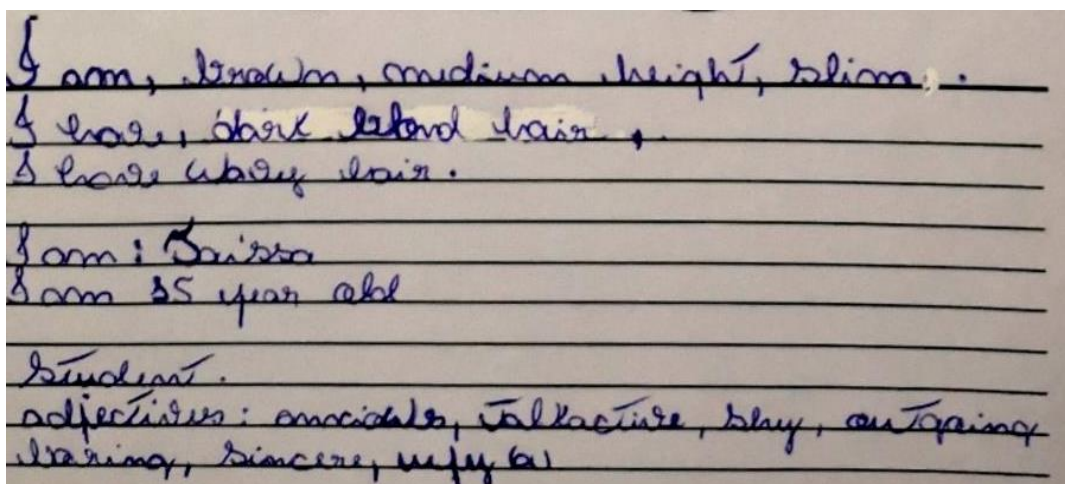 I am, brown, medium height, slim, .
I have, dark blond hair,
I have wavy hair.
I am: Taissa
I am 15 year old
Student.
adjectives: talkactive, shy, outgoing
sincere,